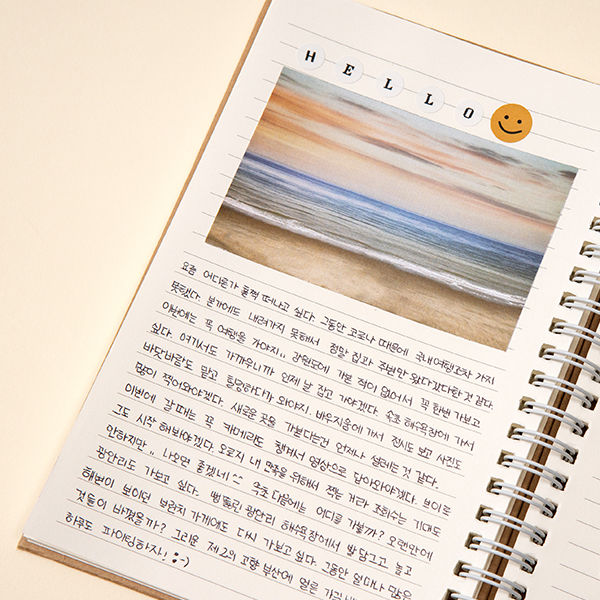 HELLO
요즘 어디론가 훌쩍 떠나고 싶다. 그동안 코로나 때문에 국내여행조차 가지
못했다. 본가에도 내려가지 못해서 정말 집과 주변만 왔다갔다한 것 같다.
이번에는 꼭 여행을 가야지,, 강원도에 가본 적이 없어서 꼭 한번 가보고
싶다. 여기서도 가까우니까 언제 날 잡고 가야겠다. 속초 해수욕장에 가서
바닷바람도 맞고 힐링하다가 와야지. 바우지움에 가서 전시도 보고 사진도
많이 찍어와야겠다. 새로운 곳을 가본다는건 언제나 설레는 것 같다.
이번에 갈 때는 꼭 카메라도 챙겨서 영상으로 담아와야겠다. 브이로
그도 시작 해봐야겠다. 오로지 내 만족을 위해서 찍는 거라 조회수는 기대도
안하지만,, 나오면 좋겠네 ^^ 속초 다음에는 어디를 가볼까? 오랜만에
광안리도 가보고 싶다. 밤 광안리 해수욕장에서 발 담그고 놀고
해변이 보이던 브런치 가게에도 다시 가보고 싶다. 그동안 얼마나 많은
것들이 바꼈을까? 그리운 제 2의 고향 부산에 얼른
하루도 파이팅하자! :-)